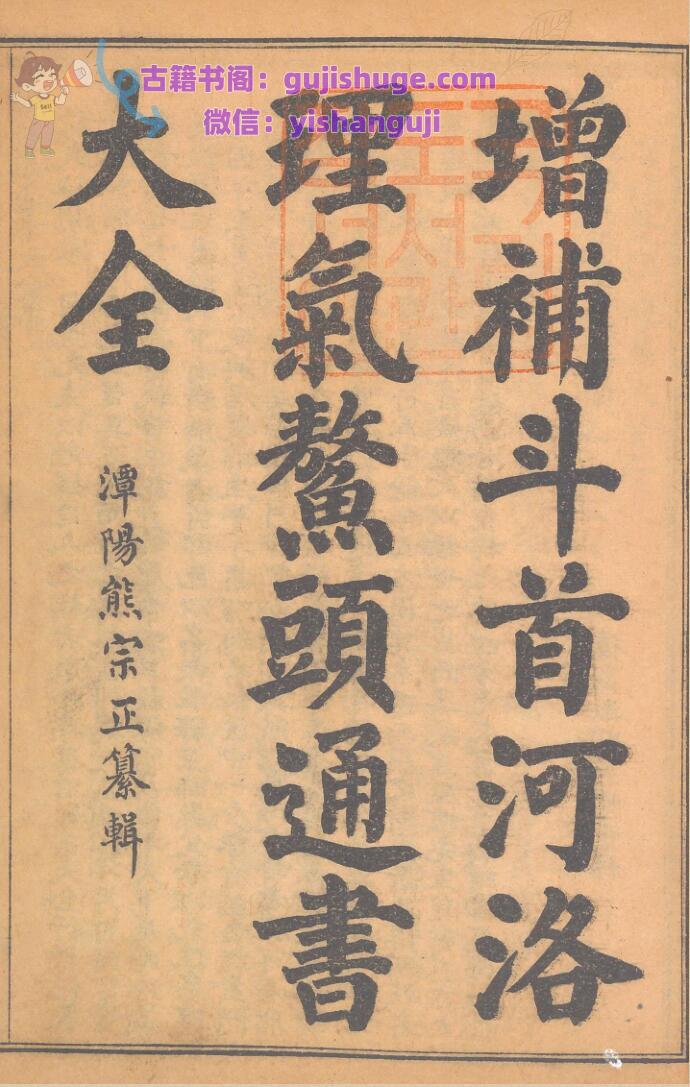 古籍书阁：gujishuge.com
微信：yishanguji
增補斗首河洛
理氣鰲頭通書
大全
潭陽熊宗正纂輯